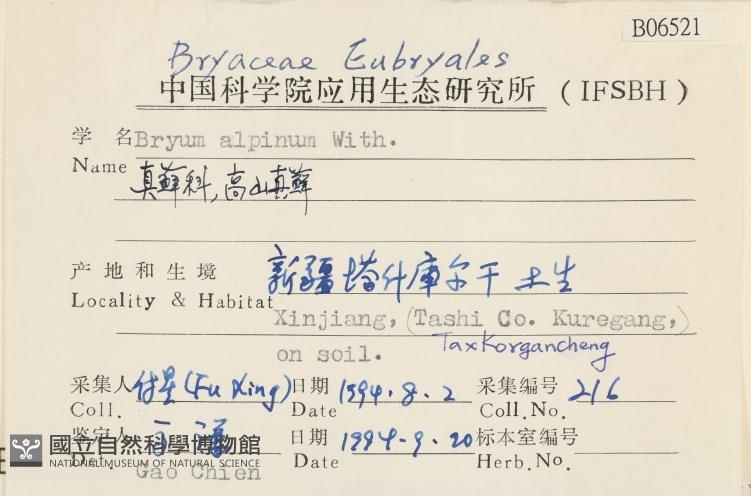 B06521
Bryaceae Eubryales
中国科学院应用生态研究所 (IFSBH)
学 名 Bryum alpinum With.
Name 真蘚科, 高山真蘚
产地和生境 新疆塔什庫尔干 土生
Locality & Habitat
Xinjiang, (Tashi Co. Kuregang,)
on soil. Taxkorgancheng
采集人 付星 (Fu Xing) 日期 1994.8.2 采集编号 216
Coll. Date Coll.No.
鉴定人 日期 1994-9.20 标本室编号
Det. Gao Chien Date Herb.No.
國立自然科學博物館
NATIONAL MUSEUM OF NATURAL SCIENCE